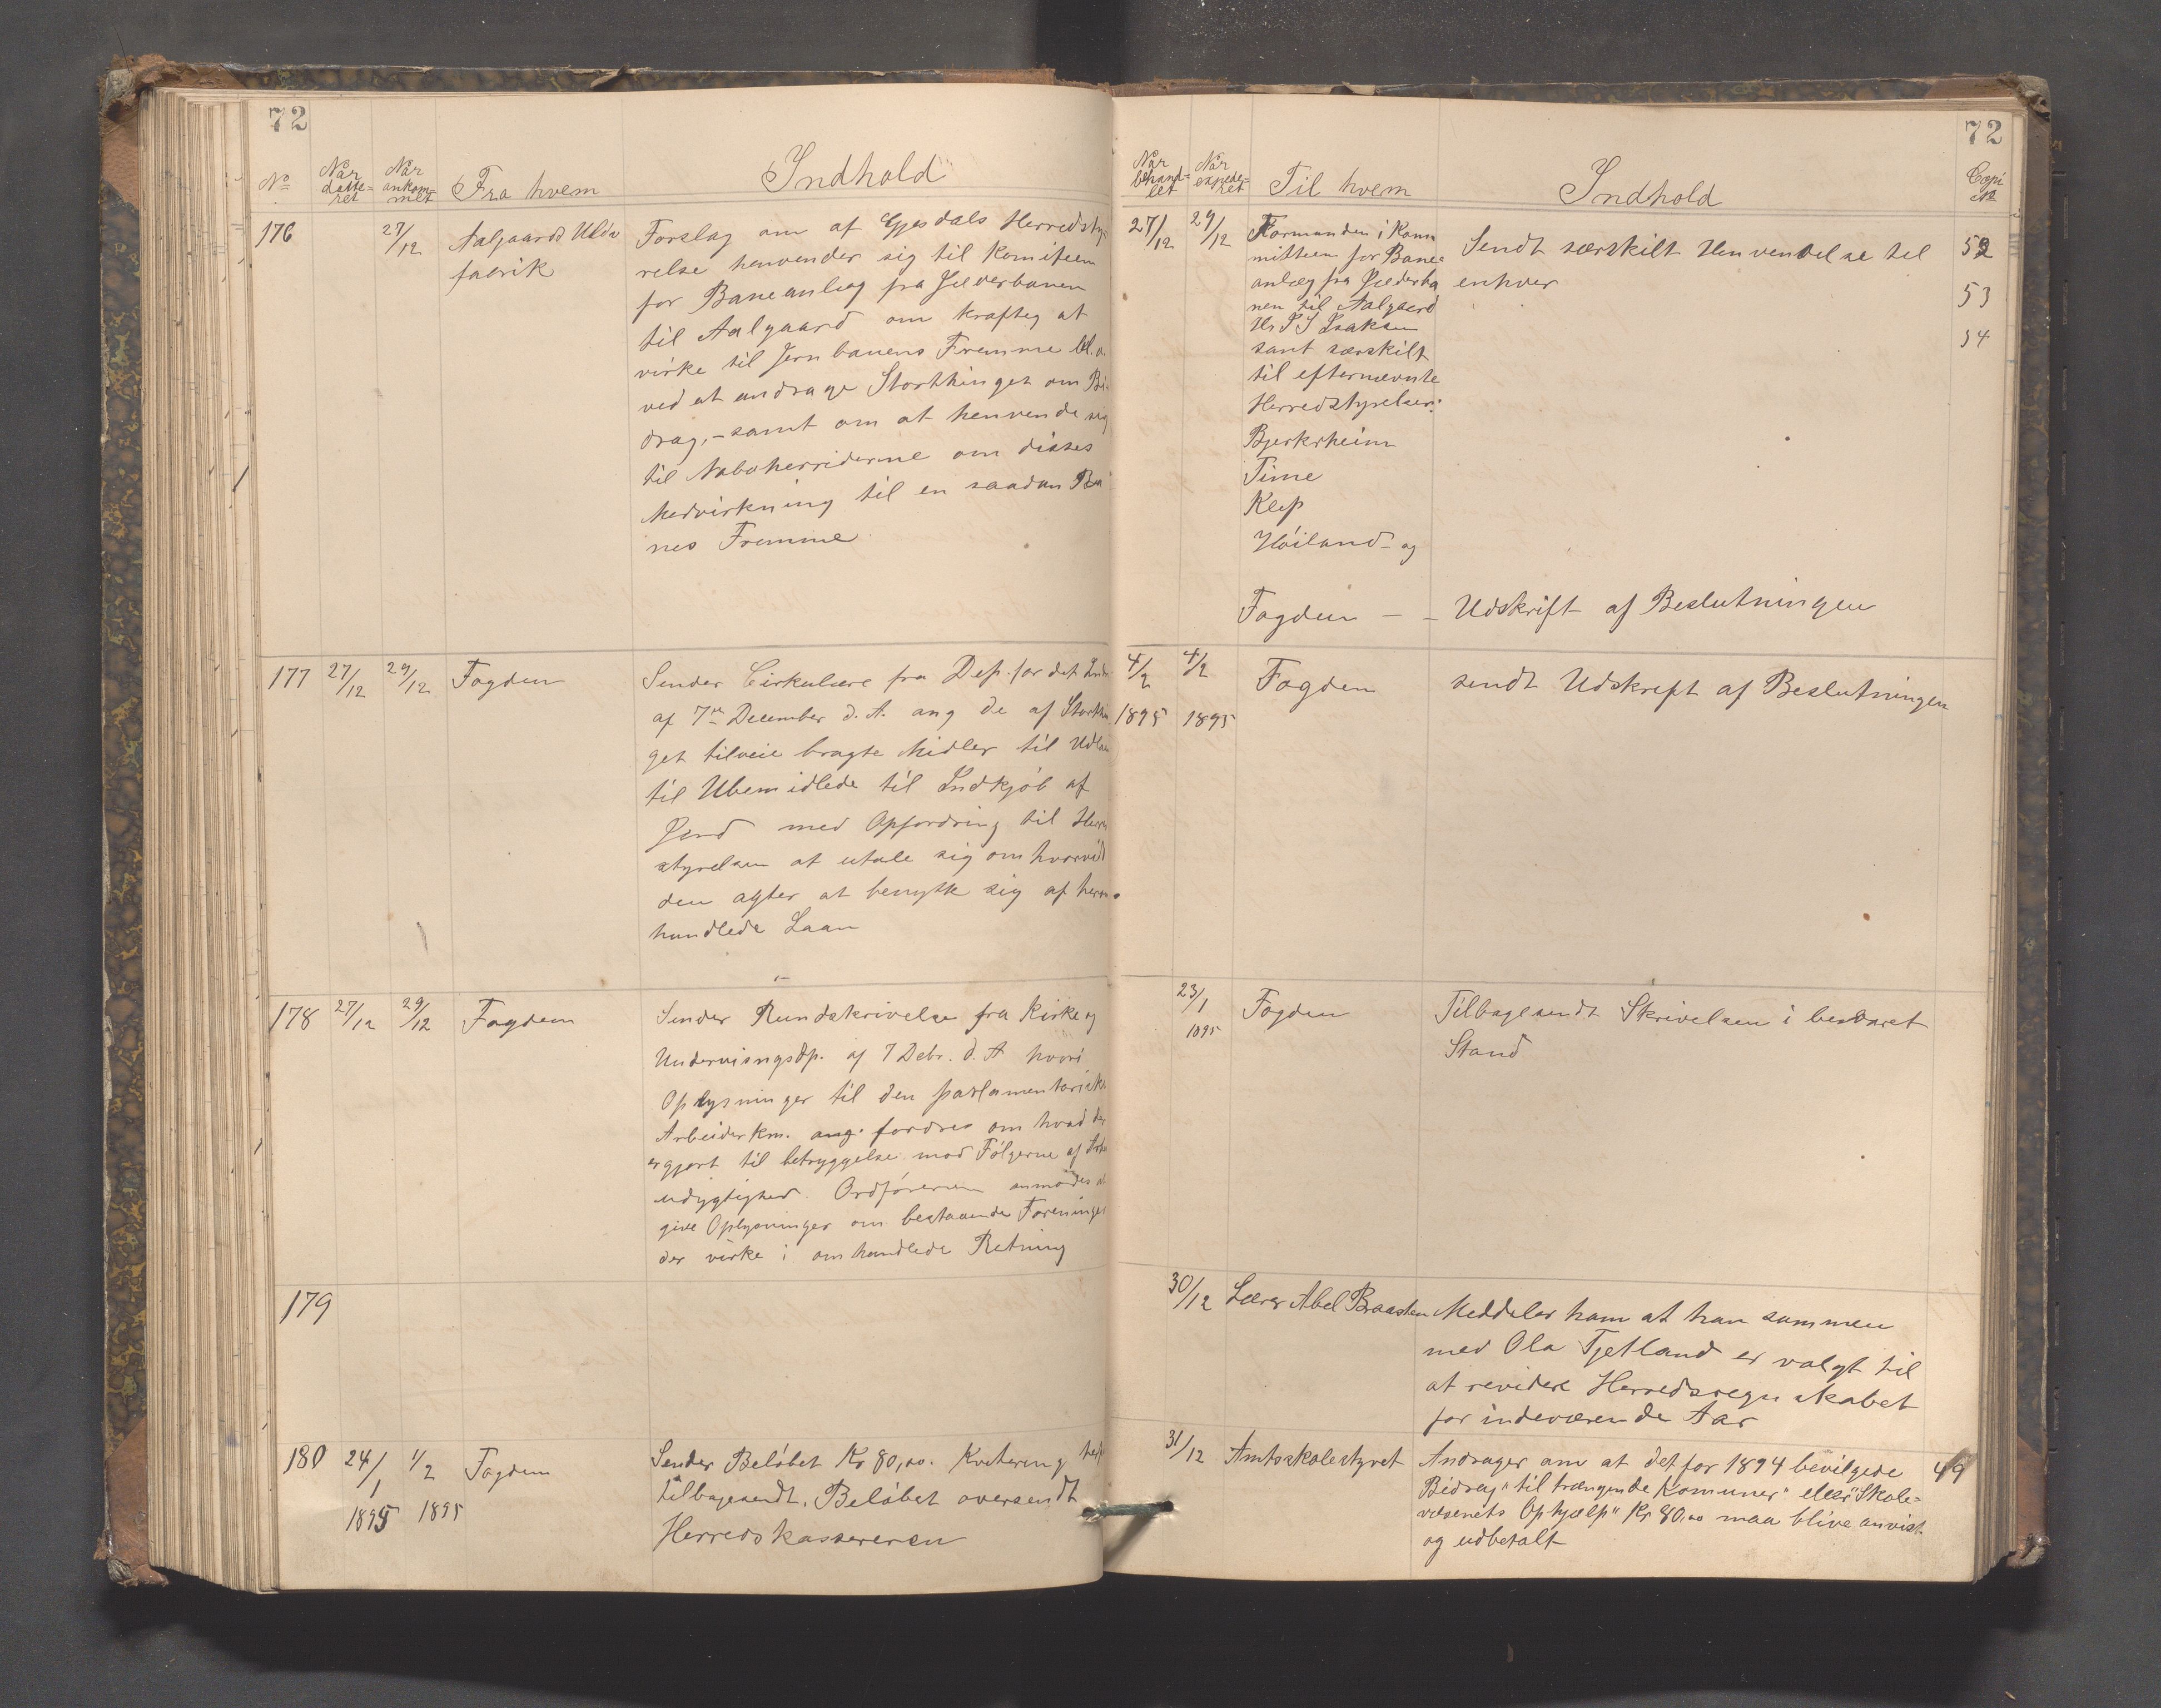 72
No
Når datteret
Når ankommet
Fra hvem
Indhold
176
27/12
Aalgaards Uldv
fabrik
Forslag om af Gjesdals Herredsty-
relse henvender sig til Komiteen
for Baneanlæg fra Jæderbanen
til Aalgaard om kraftig at
virke til Jernbanens Fremme bl.a.
ved at andrage Storthinget om Bi-
drag, - samt om at henvende sig
til Naboherriderne om disses
Medvirkning til en saadan Ba
nes Fremme
177
27/12
29/12
Fogden
Sender Cirkulære fra Dep. for det Indr
af 7de December d. A. ang de af Storthin
get tilveie bragte Midler til Udlaan
til Ubemidlede til Indkjöb af
Jord med Opfordring til Herre
styrelsen at utale sig om hvorvidt
den agter at benytte sig af herom
handlede Laan
178
27/12
29/12
Fogden
Sender Rundskrivelse fra Kirke og
Undervisngsdp. af 7 Debr. d. A hvori
Oplysninger til den parlamentariske
Arbeiderkm. ang. fordres om hvad der
er gjort til betryggelse mod Fölgerne af Arbe
udygtighed. Ordföreren anmodes at
give Oplysninger om bestaaende Foreninger
der virke i omhandlede Retning
179
180
24/1
1895
1/2
1895
Fogden
Sender Belöbet Kr 80,00. Kvitering
tilbagesendt. Belöbet oversendt
Herredskassereren
72
Når behandlet
Når expederet
Til hvem
Indhold
Copi No
27/12
29/12
Formanden i Kom
mitteen for Bane-
anlæg fra Jæderba
nen til Aalgaard
Hr. P S Isaksen
samt særskilt
til efternævnte
Herredstyrelser:
Bjerkrheim
Time
Klep
Höiland - og
Fogden -
Sendt særskilt Henvendelse til
enhver
52
53
54
- Udskrift af Beslutningen
4/2
1895
4/2
1895
Fogden
sendt Udskrift af Beslutningen
23/1
1895
Fogden
Tilbagesendt Skrivelsen i besvaret
Stand
30/12
Lærer Abel Braasten
Meddeler ham at han sammen
med Ola Tjetland er valgt til
at revidere Herredsregnskabet
for indeværende Aar
31/12
Amtsskolestyret
Andrager om at det for 1894 bevilgede
Bidrag "til trængende Komuner" eller "Skole-
væsenets Ophjælp" Kr 80,00 maa blive anvist
og udbetalt
49